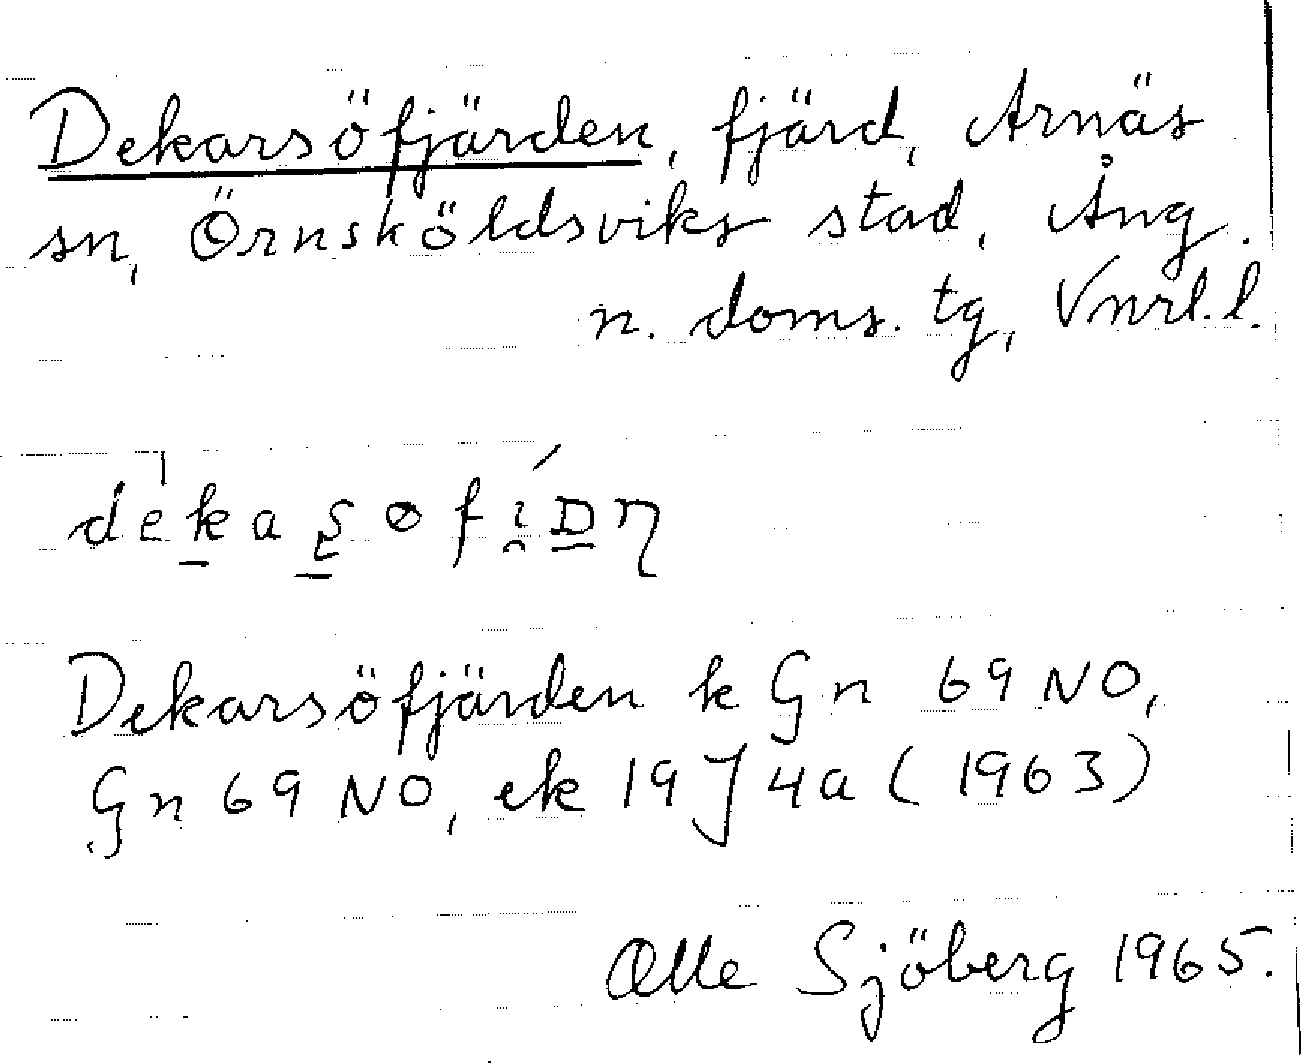 Dekarsöfjärden, fjärd, Arnäs
sn, Örnsköldsviks stad, Ång.
n. doms. tg, Vnrl. l.
Dekarsöfjärden k Gn 69 NO,
Gn 69 NO, ek 19 J 4a (1963)
Olle Sjöberg 1965.